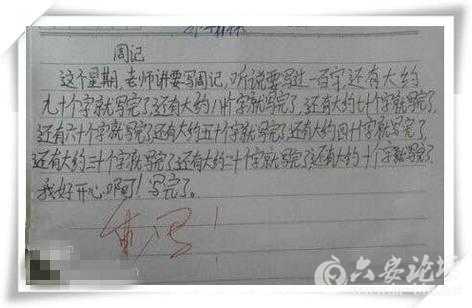 周记
这个星期,老师讲要写周记,听说要写过一百字,还有大约
九十个字就写完了还有大约八十字就写完了,还有大约七十个字就写完了,
还有六十个字就写完了还有大约五十个字就写完了还有大约四十个字就写完了
还有大约三十个字就写完了还有大约二十个字就写完了还有大约十个字就写完了
我好开心啊!写完了。
重写!
六安论坛